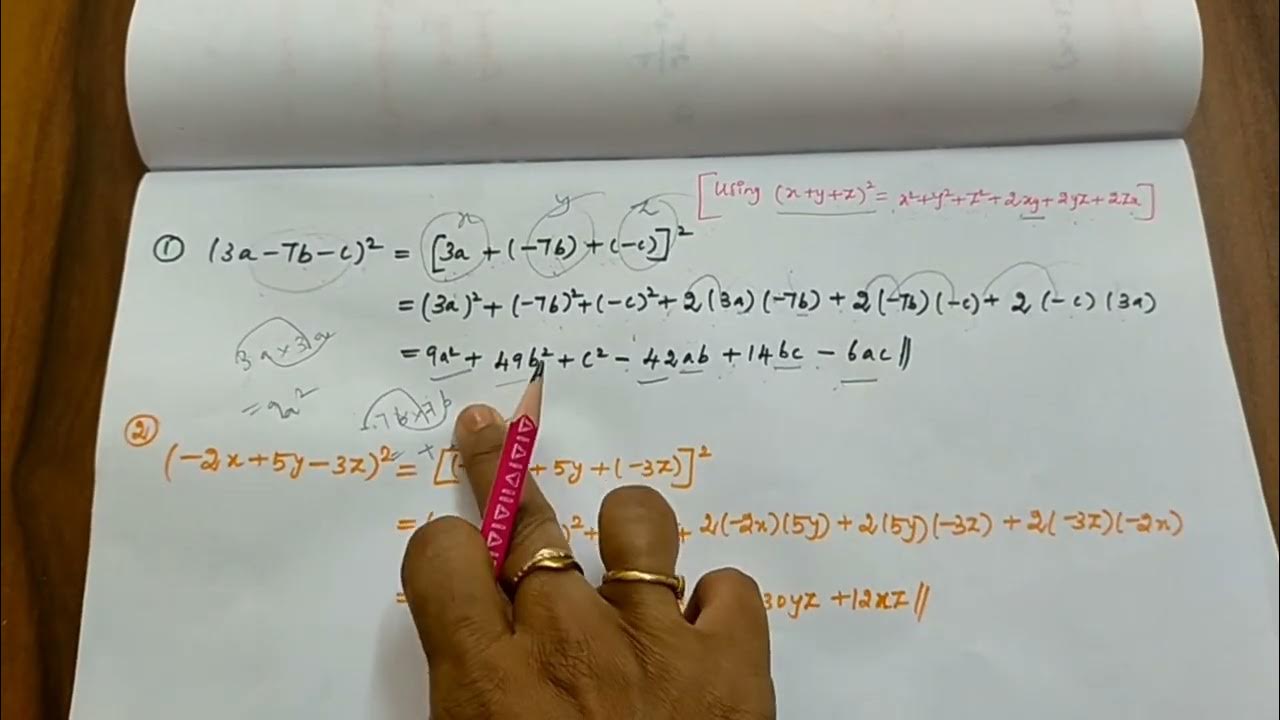 [Using (x+y+z)² = x²+y²+z²+2xy+2yz+2zx]
x y z
① (3a-7b-c)² = [3a+(-7b)+(-c)]²
= (3a)²+(-7b)²+(-c)²+2(3a)(-7b)+2(-7b)(-c)+2(-c)(3a)
3a×3a
= 9a²+49b²+c²-42ab+14bc-6ac//
= 9a²
-7b×-7b
= +
② (-2x+5y-3z)² = [(- +5y+(-3z)]²
= )²+ + 2(-2x)(5y)+2(5y)(-3z)+2(-3z)(-2x)
= 30yz+12xz//